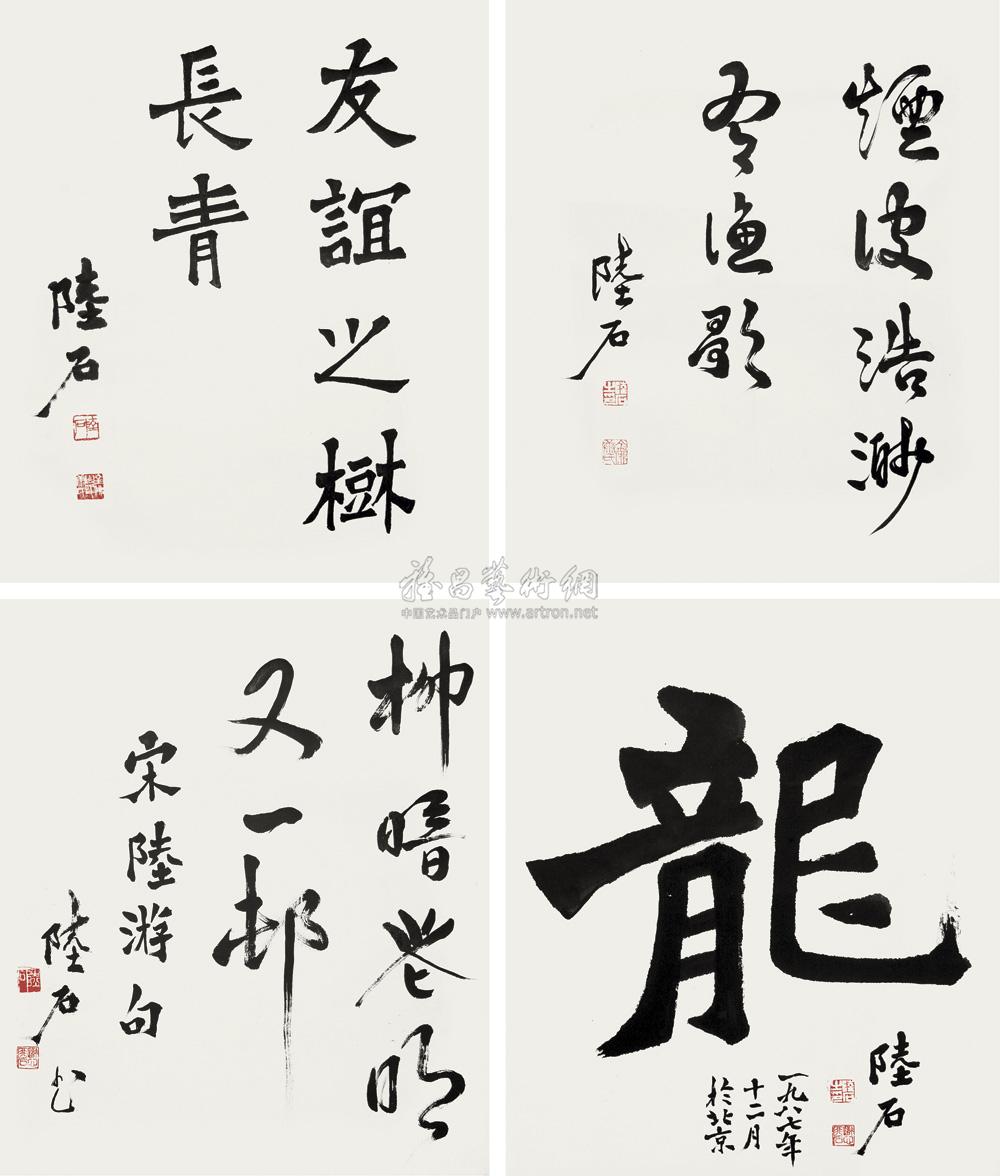 友誼之樹
長青
陸石
煙波浩渺
有漁歌
陸石
雅昌藝術網
中国艺术品门户 www.artron.net
柳暗花明
又一邨
宋陸游句
陸石书
龍
陸石
一九八七年
十二月
於北京